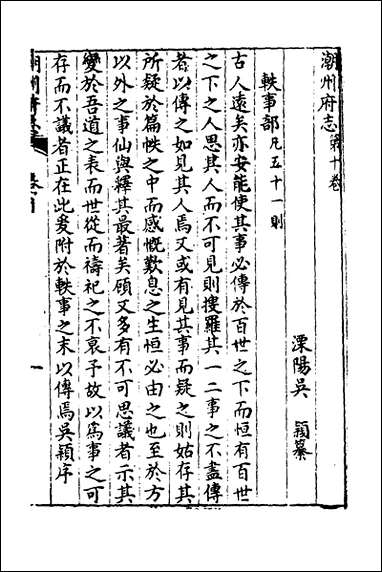 潮州府志第十卷
溧陽吳　穎纂
軼事部凡五十一則
古人遠矣亦安能使其事必傳於百世之下而恒有百世
之下之人思其人而不可見則搜羅其一二事之不盡傳
者以傳之如見其人焉又或有見其事而疑之則姑存其
所疑於篇帙之中而感慨歎息之生恒必由之也至於方
以外之事仙與釋其最著矣顧又多有不可思議者示其
變於吾道之表而世從而禱祀之不衰予故以爲事之可
存而不議者正在此爰附於軼事之末以傳焉吳穎序
一